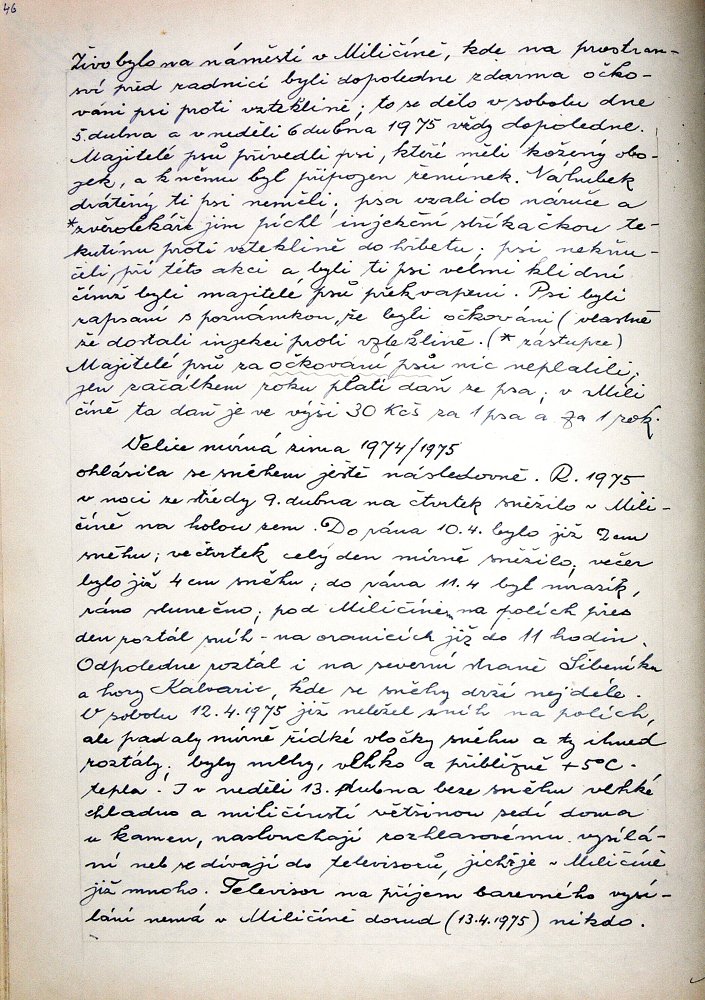 46
Živo bylo na náměstí v Miličíně, kde na prostran-
sví před radnicí byli dopoledne zdarma očko-
váni psi proti vzteklině; to se dělo v sobotu dne
5 dubna a v neděli 6 dubna 1975 vždy dopoledne.
Majitelé psů přivedli psi, které měli kožený obo-
jek, a k němu byl připojen řemínek. Náhubek
drátěný ti psi neměli; psa vzali do náruče a
*zvěrolékaře jim píchl injekční stříkačkou te-
kutinu proti vzteklině do hřbetu; psi nekňu-
čeli, při této akci a byli ti psi velmi klidní
čímž byli majitelé psů překvapeni. Psi byli
zapsáni s poznámkou, že byli očkováni (vlastně
že dostali injekci proti vzteklině. (* zástupce)
Majitelé psů za očkování psů nic neplatili,
jen začátkem roku platí daň ze psa; v Mili
číně ta daň je ve výši 30 Kčs za 1 psa a za 1 rok.
Velice mírná zima 1974/1975
ohlásila se sněhem ještě následovně. R. 1975
v noci ze středy 9. dubna na čtvrtek sněžilo v Mili-
číně na holou zem. Do rána 10.4. bylo již 2 cm
sněhu; ve čtvrtek celý den mírně sněžilo, večer
bylo již 4 cm sněhu; do rána 11.4 byl mrazík,
ráno slunečno; pod Miličínem na polích přes
den roztál sníh - na oranicích již do 11 hodin.
Odpoledne roztál i na severní straně Šibeníku
a hory Kalvarie, kde se sněhy drží nejdéle.
V sobotu 12.4.1975 již neležel sníh na polích,
ale padaly mírně řídké vločky sněhu a ty ihned
roztály; byly mlhy, vlhko a přibližně +5°C.
tepla. I v neděli 13. dubna beze sněhu vlhké
chladno a miličínští většinou sedí doma
u kamen, naslouchají rozhlasovému vysílá-
ní neb se dívají do televisorů, jichž je v Miličíně
již mnoho. Televisor na příjem barevného vysí-
lání nemá v Miličíně dosud (13.4.1975) nikdo.